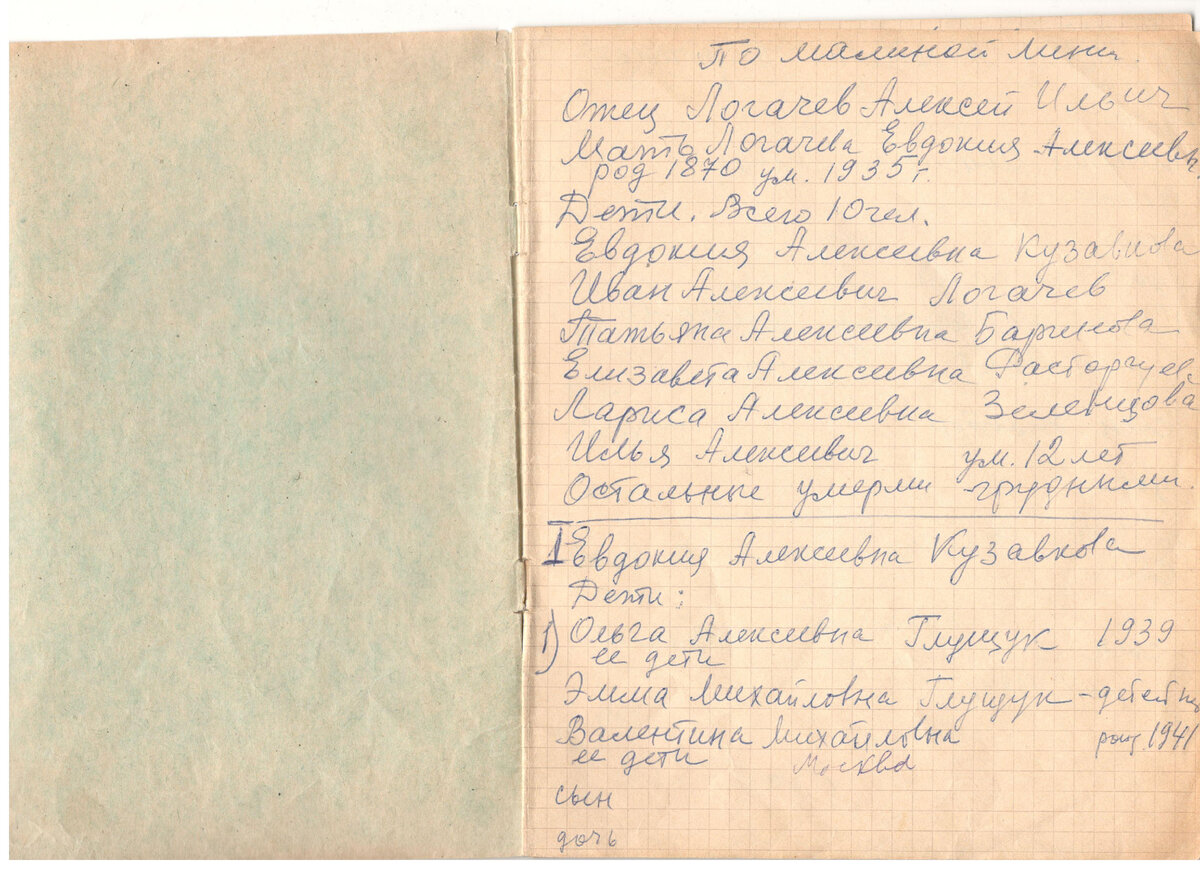 По маминой лини
Отец Логачев Алексей Ильич
Мать Логачева Евдокия Алексеевн
род 1870 ум. 1935 г.
Дети. Всего 10 чел.
Евдокия Алексеевна Кузавкова
Иван Алексеевич Логачев
Татьяна Алексеевна Баринова
Елизавета Алексеевна Фасторгуев
Лариса Алексеевна Зеленцова
Илья Алексеевич ум. 12 лет
Остальные умерли грудными.
I Евдокия Алексеевна Кузавкова
Дети:
1) Ольга Алексеевна Глущук 1939
ее дети
Эмма Михайловна Глущук - детей
Валентина Михайловна 1941
ее дети Москва
сын
дочь